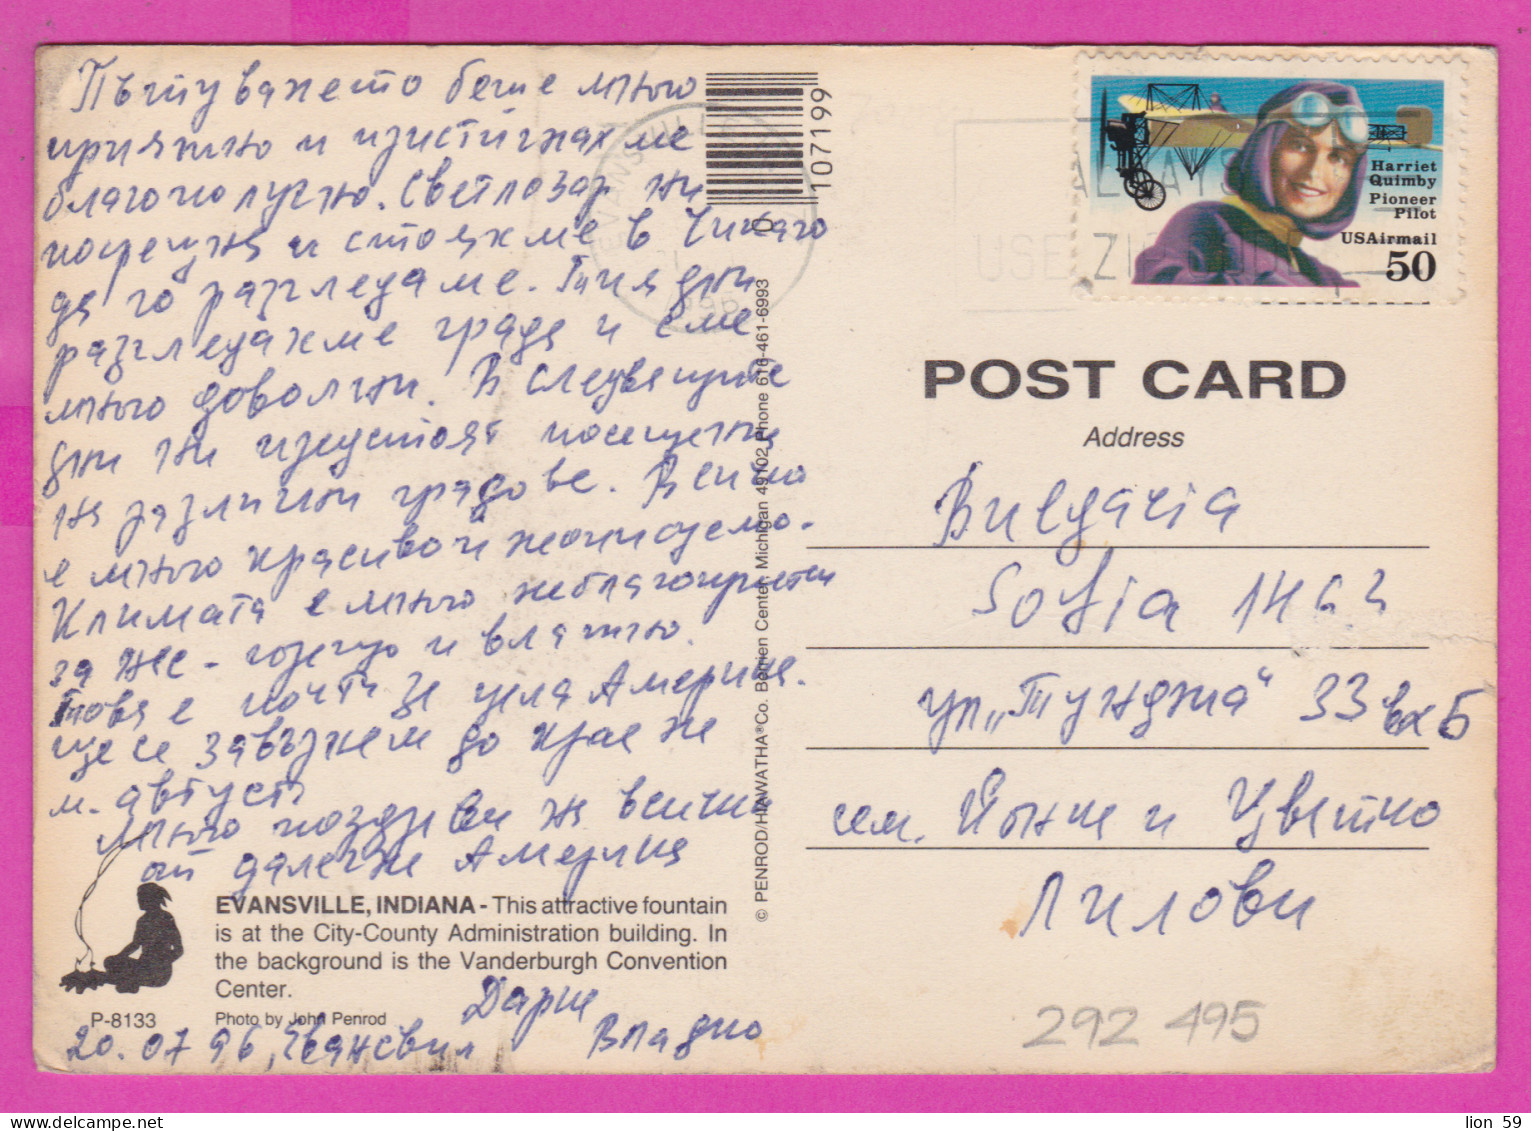 Пътуването беше много
приятно и пристигнахме
благополучно. Светлозар ни
посрещна и стояхме в Чикаго
да го разгледаме. Три дни
разглеждахме града и сме
много доволни. В следващите
дни ни предстоят посещения
на различни градове. Всичко
е много красиво и
Климата е много неблагоприятен
за нас - горещо и влажно.
Това е почти за цяла Америка.
Ще се завърнем до края на
м. август
Много поздрави на всички
от далечна Америка
EVANSVILLE, INDIANA - This attractive fountain
is at the City-County Administration building. In
the background is the Vanderburgh Convention
Center.
P-8133
Photo by John Penrod
Дарина
20.07.96, Евансвил
Владко
107199
0
© PENROD/HIAWATHA®Co. Berrien Center, Michigan 49102 Phone 616-461-6993
EVANSVILLE
ALWAYS
USE ZIP CODE
Harriet
Quimby
Pioneer
Pilot
USAirmail
50
POST CARD
Address
Bulgaria
Sofia 1463
ул. „Тунджа“ 33 вх Б
сем. Янка и Цветко
Лилови
292 495
lion 59